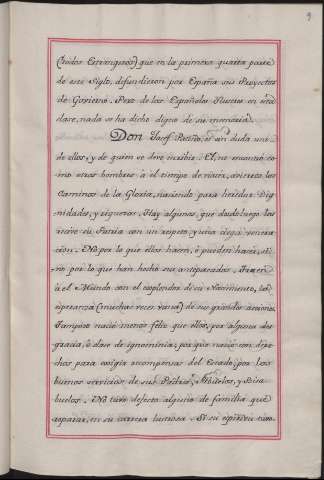 9
(todos Estrangeros) que en la primera quarta parte
de este siglo, difundieron por España sus Proyectos
de Govierno. Pero de los Españoles Ilustres en esta
clase, nada se ha dicho digno de su memoria.
Don Josef Patiño, es sin duda uno
de ellos, y de quien se deve escribir. El, no encontró co-
mo otros hombres à el tiempo de nacer, abiertos los
Caminos de la Gloria, naciendo para heredar Dig-
nidades, y riquezas. Hay algunos, que desde luego los
mira su Patria con un respeto, y una ciega venera-
cion. No por lo que ellos hacen, ò pueden hacer, si-
no por lo que han hecho sus antepasados. Traen
à el Mundo con el esplendor de su Nacimiento, la
esperanza (muchas veces vana) de sus grandes acciones.
Tampoco nació menos féliz que ellos, por alguna des-
gracia, ò clase de ignominia; por que nació con dere-
chos para exigir recompensas del Estado, por los
buenos servicios de sus Padres, Abuelos, y Bisa-
buelos. No tuvo defecto alguno de familia que
reparar, en su carrera luminosa. Si su espiritu tuvo